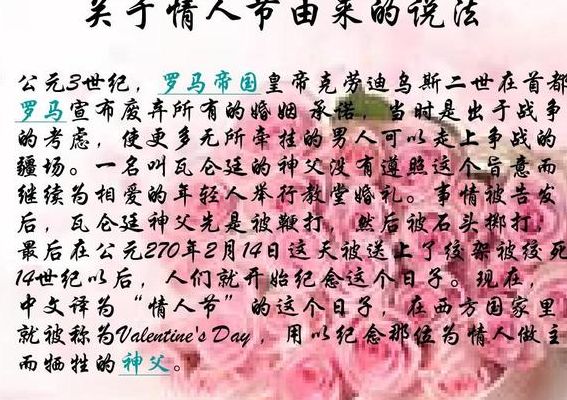 关于情人节由来的说法
公元3世纪，罗马帝国皇帝克劳迪乌斯二世在首都
罗马宣布废弃所有的婚姻 承诺，当时是出于战争
的考虑，使更多无所牵挂的男人可以走上争战的
疆场。一名叫瓦仑廷的神父没有遵照这个旨意而
继续为相爱的年轻人举行教堂婚礼。事情被告发
后，瓦仑廷神父先是被鞭打，然后被石头掷打，
最后在公元270年2月14日这天被送上了绞架被绞死
14世纪以后，人们就开始纪念这个日子。现在，
中文译为“情人节”的这个日子，在西方国家里
就被称为Valentine's Day，用以纪念那位为情人做主
而牺牲的神父。